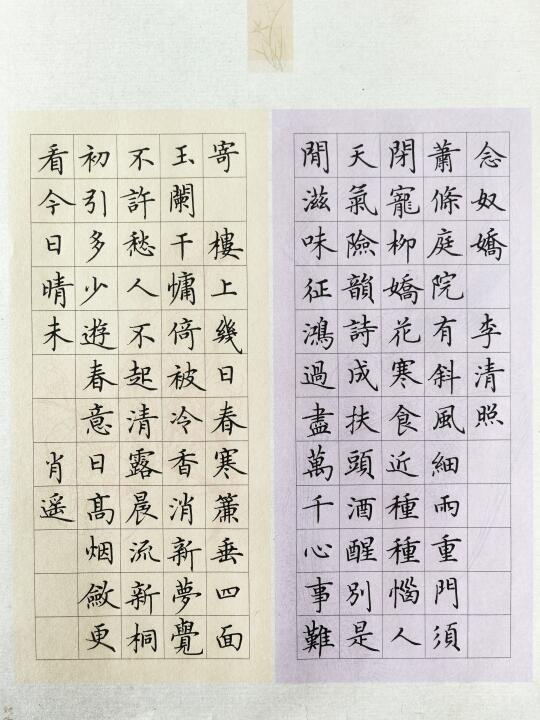 念奴嬌 李清照
蕭條庭院有斜風細雨重門須
閉寵柳嬌花寒食近種種惱人
天氣險韻詩成扶頭酒醒別是
閒滋味征鴻過盡萬千心事難
寄 樓上幾日春寒簾垂四面
玉闌干慵倚被冷香消新夢覺
不許愁人不起清露晨流新桐
初引多少遊春意日高烟斂更
看今日晴未 肖遥